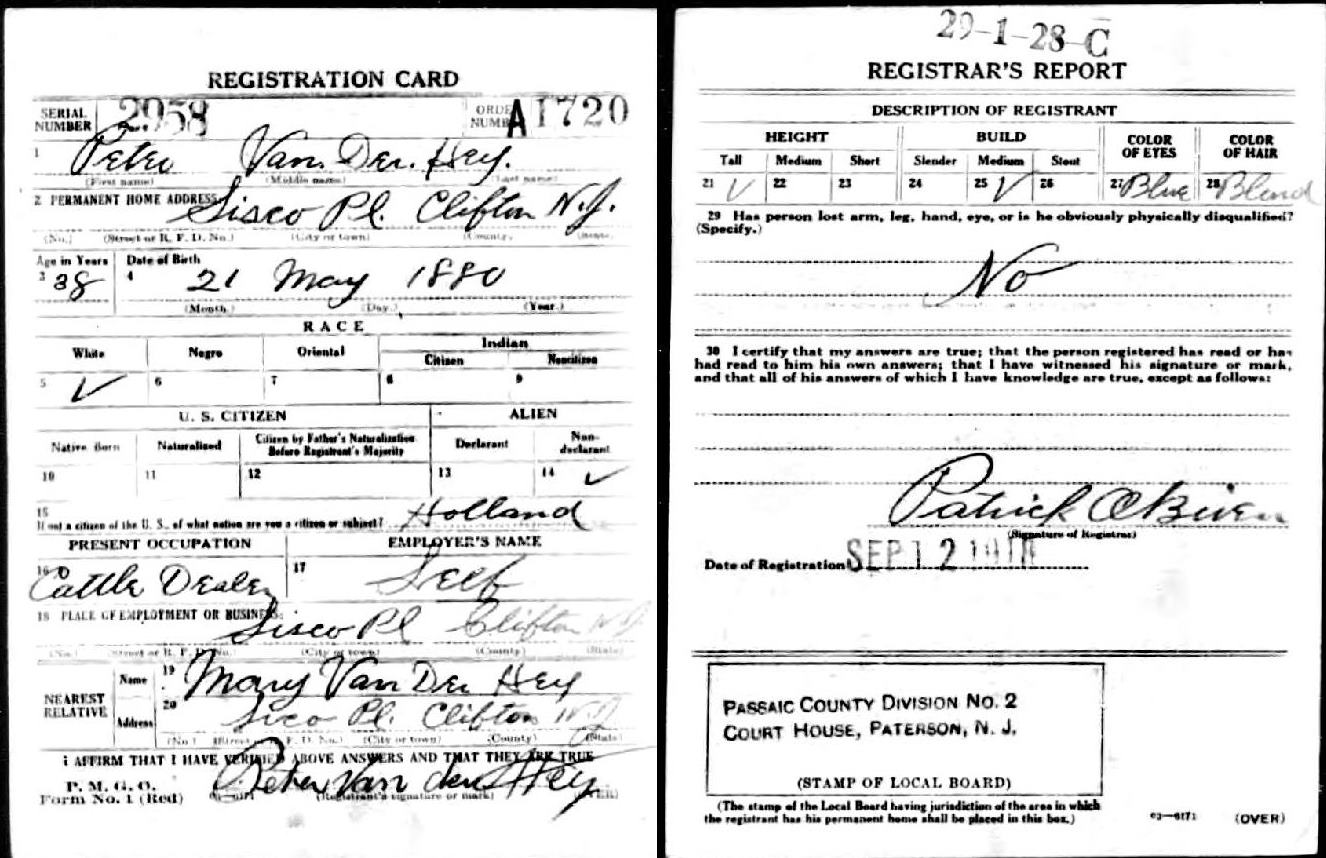 REGISTRATION CARD
SERIAL NUMBER 2958 ORDER NUMB A1720
1 Peter Van. Der. Hey.
(First name) (Middle name) (Last name)
2 PERMANENT HOME ADDRESS: Sisco Pl. Clifton N.J.
(No.) (Street or R. F. D. No.) (City or town) (County) (State)
Age in Years Date of Birth
3 38 4 21 May 1880
(Month.) (Day.) (Year.)
RACE
White Negro Oriental Indian
Citizen Noncitizen
5 ✓ 6 7 8 9
U. S. CITIZEN ALIEN
Native Born Naturalized Citizen by Father's Naturalization Before Registrant's Majority Declarant Non-declarant
10 11 12 13 14 ✓
15 If not a citizen of the U. S., of what nation are you a citizen or subject? Holland
PRESENT OCCUPATION EMPLOYER'S NAME
16 Cattle Dealer 17 Self
18 PLACE OF EMPLOYMENT OR BUSINESS:
Sisco Pl Clifton N J
(No.) (Street or R. F. D. No.) (City or town) (County) (State)
NEAREST RELATIVE Name 19 Mary Van Der Hey
Address 20 Sico Pl. Clifton N J
(No.) (Street or R. F. D. No.) (City or town) (County) (State)
I AFFIRM THAT I HAVE VERIFIED ABOVE ANSWERS AND THAT THEY ARE TRUE
P. M. G. O.
Form No. 1 (Red) Peter Van der Hey
(Registrant's signature or mark) (OVER)
29-1-28-C
REGISTRAR'S REPORT
DESCRIPTION OF REGISTRANT
HEIGHT BUILD COLOR OF EYES COLOR OF HAIR
Tall Medium Short Slender Medium Stout
21 ✓ 22 23 24 25 ✓ 26 27 Blue 28 Blond
29 Has person lost arm, leg, hand, eye, or is he obviously physically disqualified?
(Specify.)
No
30 I certify that my answers are true; that the person registered has read or has
had read to him his own answers; that I have witnessed his signature or mark,
and that all of his answers of which I have knowledge are true, except as follows:
Patrick O'Brien
(Signature of Registrar)
Date of Registration SEP 12 1918
PASSAIC COUNTY DIVISION NO. 2
COURT HOUSE, PATERSON, N. J.
(STAMP OF LOCAL BOARD)
(The stamp of the Local Board having jurisdiction of the area in which
the registrant has his permanent home shall be placed in this box.)
03—6171 (OVER)